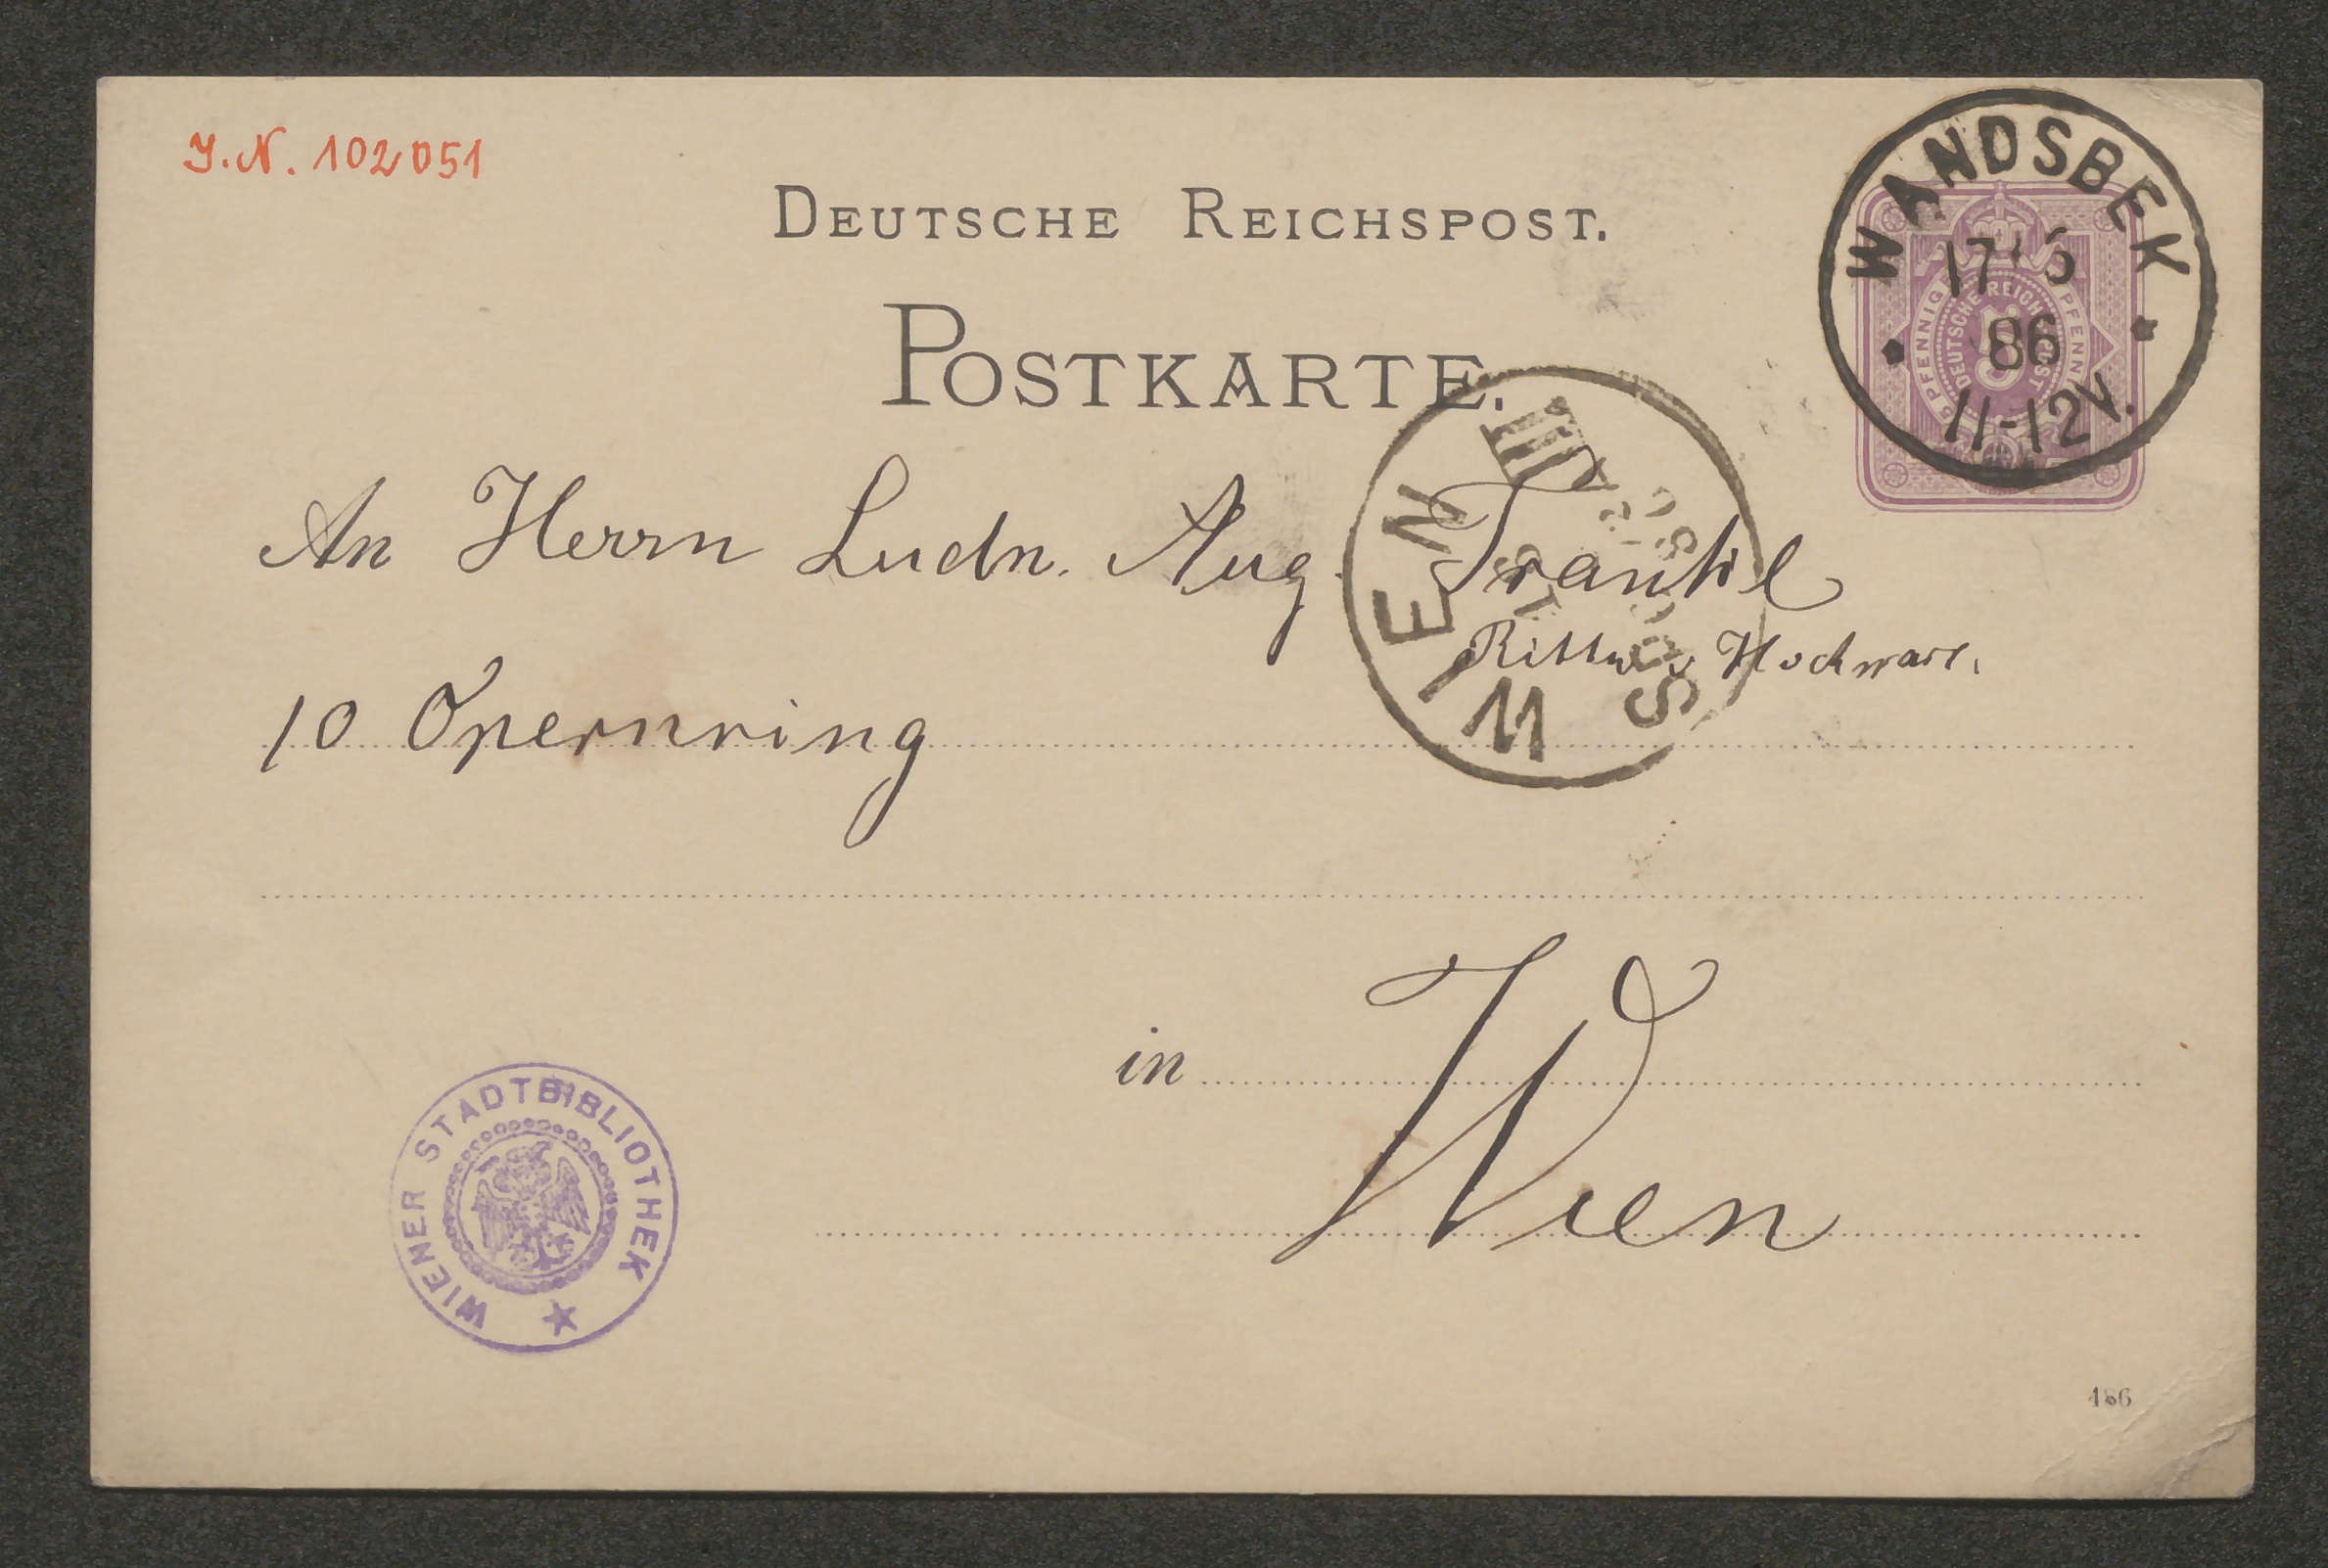 J.N. 102051
DEUTSCHE REICHSPOST.
POSTKARTE.
WANDSBEK
86
11-12V.
5 PFENNIG PFENNIG
DEUTSCHE REICHSPOST
5
WIEN
An Herrn Ludw. Aug. Frankl
Ritter v Hochwart.
10 Opernring
in
Wien
WIENER STADTBIBLIOTHEK
186